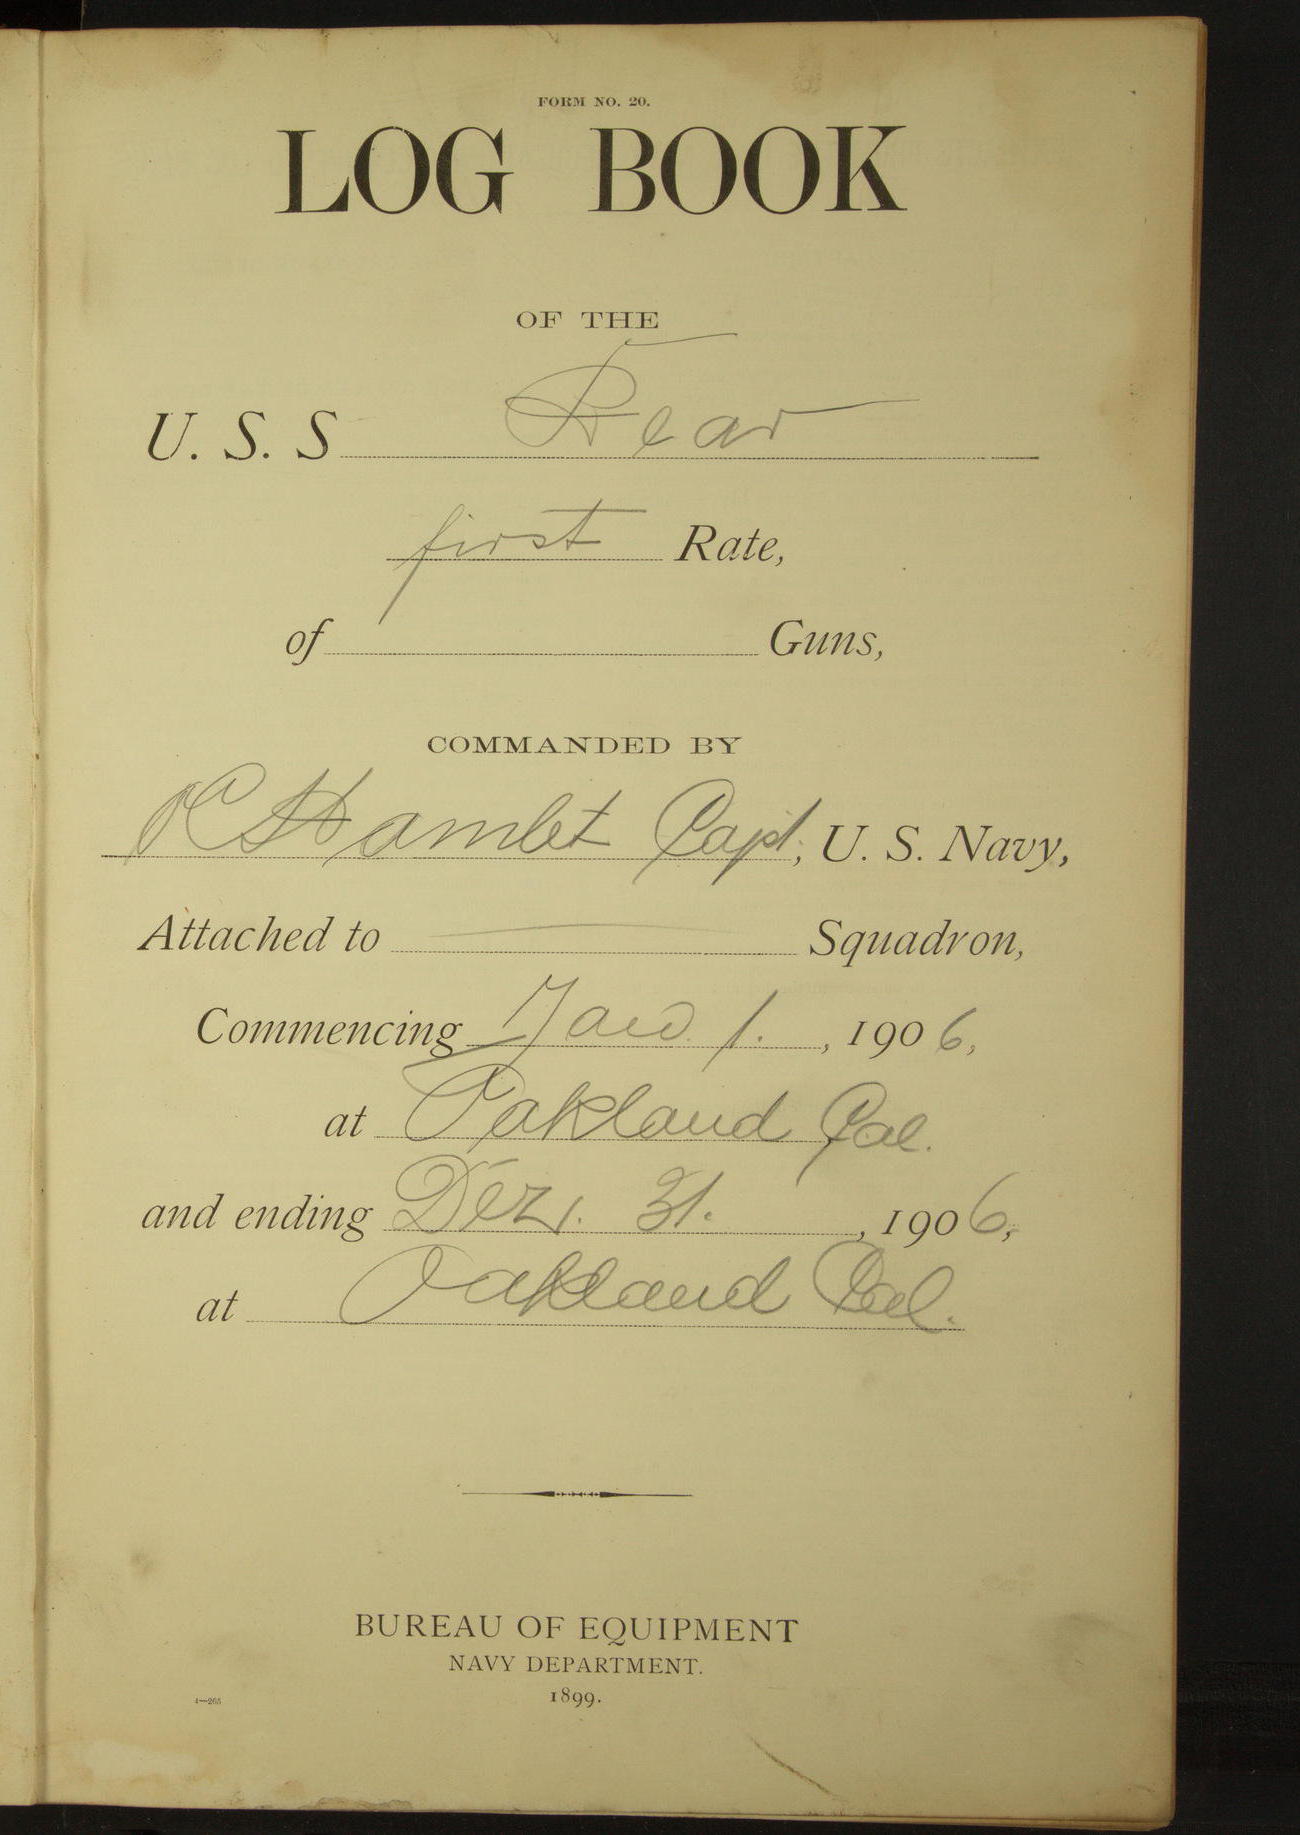 FORM NO. 20.
LOG BOOK
OF THE
U. S. S Bear
first Rate,
of Guns,
COMMANDED BY
O C Hamlet Capt, U. S. Navy,
Attached to — Squadron,
Commencing Jan. 1. , 1906,
at Oakland Cal.
and ending Dec. 31. , 1906,
at Oakland Cal.
BUREAU OF EQUIPMENT
NAVY DEPARTMENT.
1899.
4—265